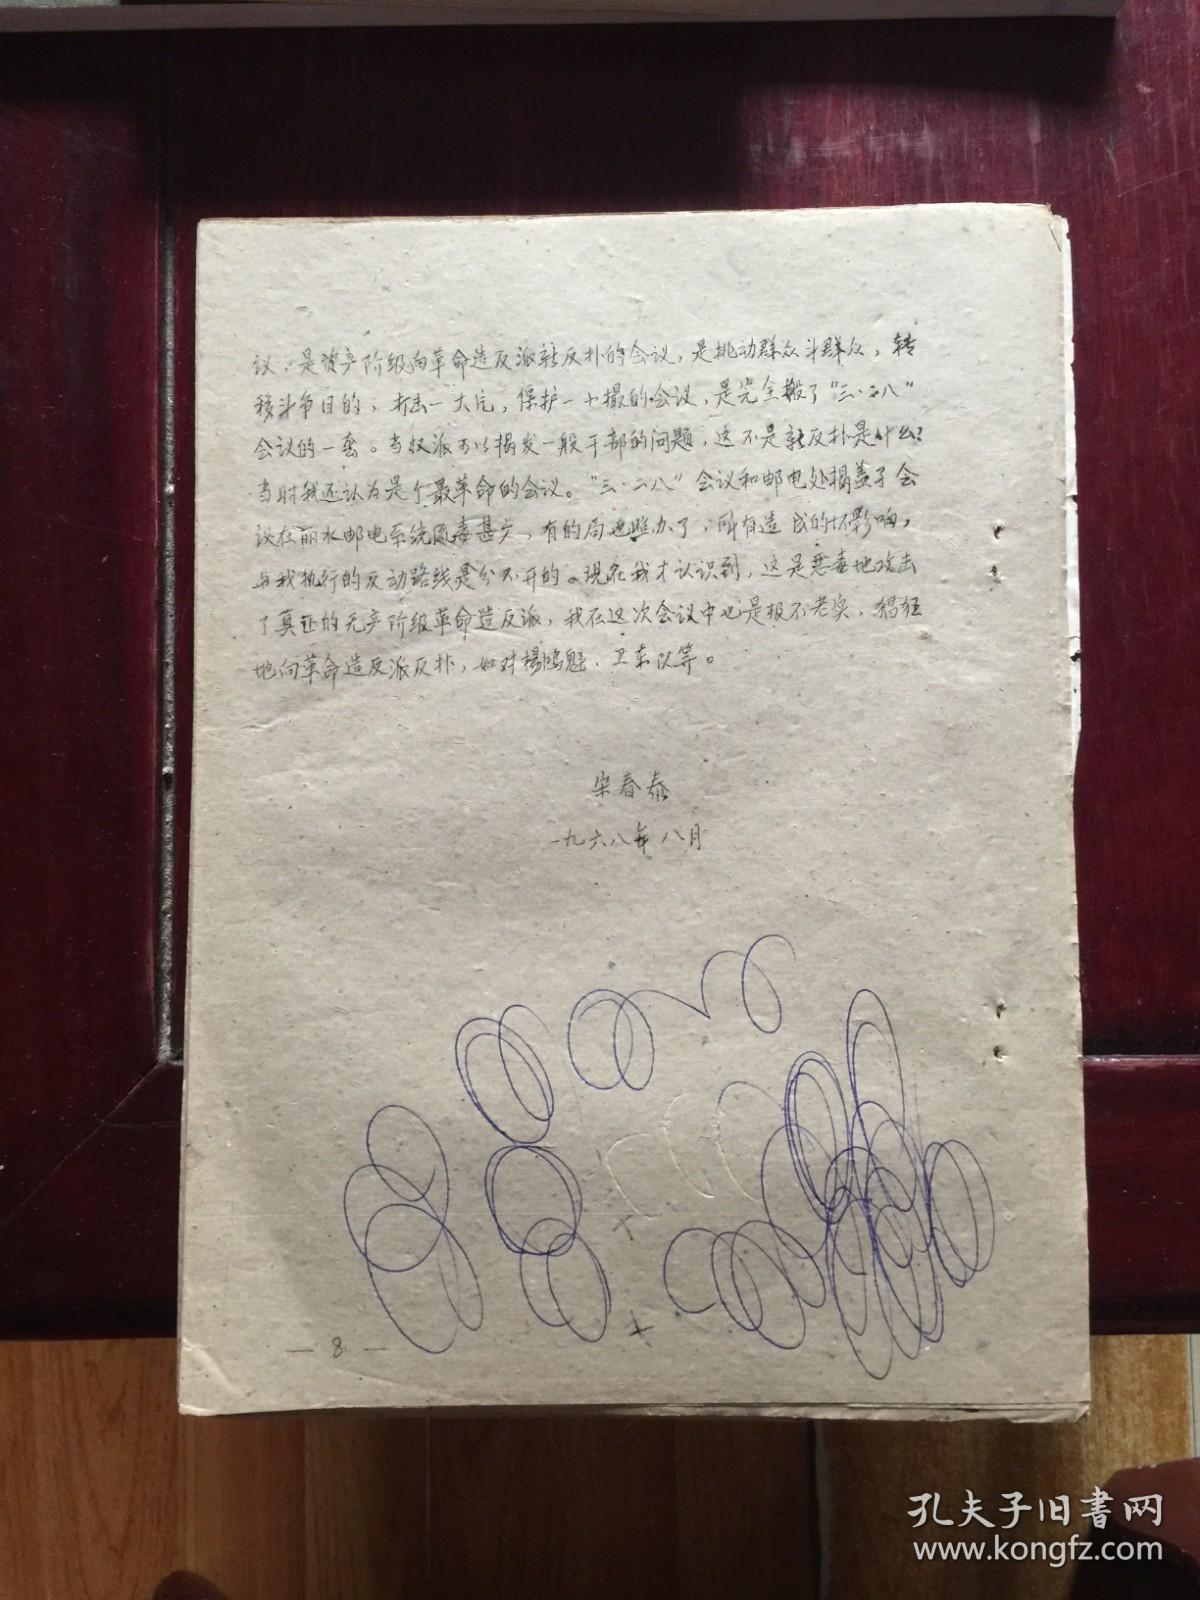 议，是资产阶级向革命造反派新反扑的会议，是挑动群众斗群众，转
移斗争目的，打击一大片，保护一小撮的会议，是完全搬了“三·二八”
会议的一套。当权派可以揭发一般干部的问题，这不是新反扑是什么？
当时我还认为是个最革命的会议。“三·二八”会议和邮电处揭盖子会
议在丽水邮电系统流毒甚广，有的局也照办了，所有造成的坏影响，
与我执行的反动路线是分不开的。现在我才认识到，这是恶毒地攻击
了真正的无产阶级革命造反派，我在这次会议中也是极不老实，猖狂
地向革命造反派反扑，如对楊鸿魁、卫东队等。
宋春泰
一九六八年八月
— 8 —
孔夫子旧书网
www.kongfz.com